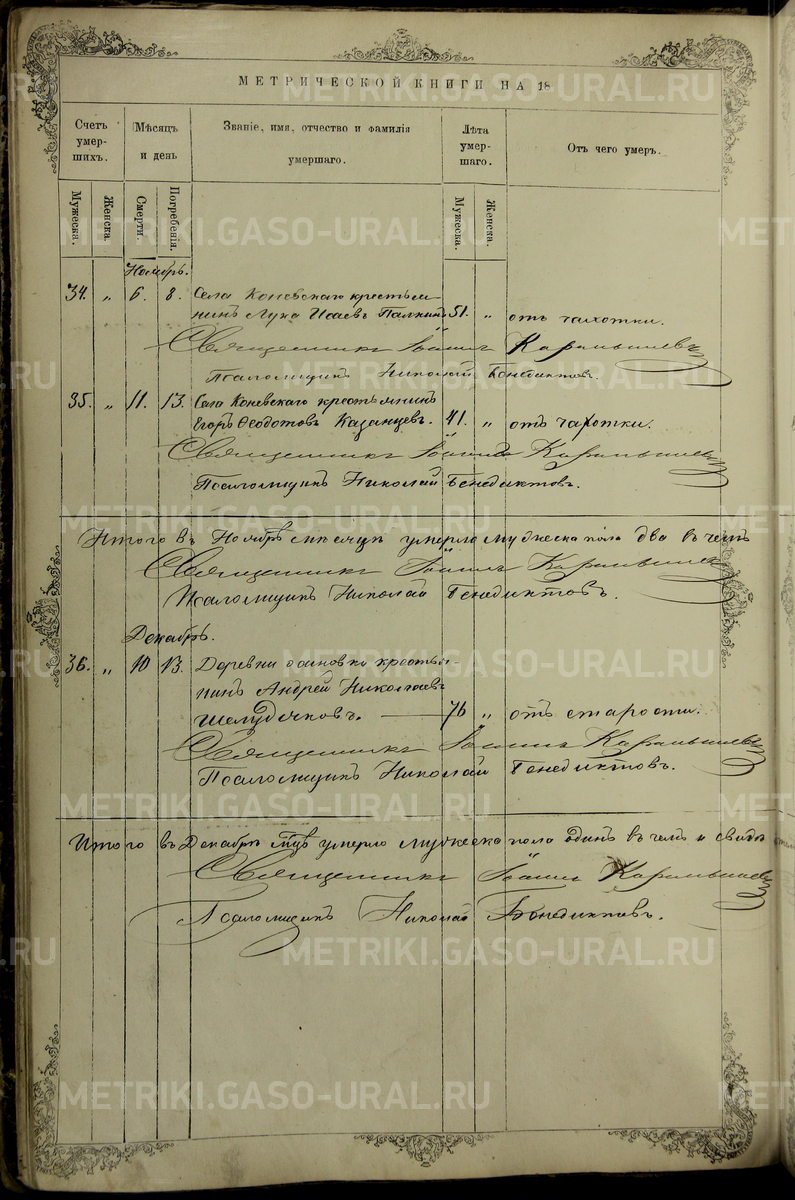 МЕТРИЧЕСКОЙ КНИГИ НА 18
Счетъ умер- шихъ.
Мѣсяцъ и день
Званіе, имя, отчество и фамилія умершаго.
Лѣта умер- шаго.
Отъ чего умеръ.
Мужеска.
Женска.
Смерти.
Погребенія.
Мужеска.
Женска.
Ноябрь.
34. „ 6. 8. Села Коневскаго крестья-
нинъ Лука Исаевъ Палкинъ 51. „ отъ чахотки.
Священникъ Іоаннъ Карамышевъ
Псаломщикъ Николай Бенедиктовъ.
35. „ 11. 13. Села Коневскаго крестьянинъ
Егоръ Ѳеодотовъ Казанцевъ. 41. „ отъ чахотки.
Священникъ Іоаннъ Карамышевъ
Псаломщикъ Николай Бенедиктовъ.
Итого въ Ноябрѣ месяцѣ умерло мужеска пола два въ чемъ
Священникъ Іоаннъ Карамышевъ
Псаломщикъ Николай Бенедиктовъ.
Декабрь.
36. „ 10 13. Деревни Осиновки крестья-
нинъ Андрей Николаевъ
Шелудяковъ. 76 „ отъ старости.
Священникъ Іоаннъ Карамышевъ
Псаломщикъ Николай Бенедиктовъ.
Итого въ Декабрѣ мцѣ умерло мужеска пола одинъ въ чемъ и свидѣ
Священникъ Іоаннъ Карамышевъ
Псаломщикъ Николай Бенедиктовъ.
METRIKI.GASO-URAL.RU